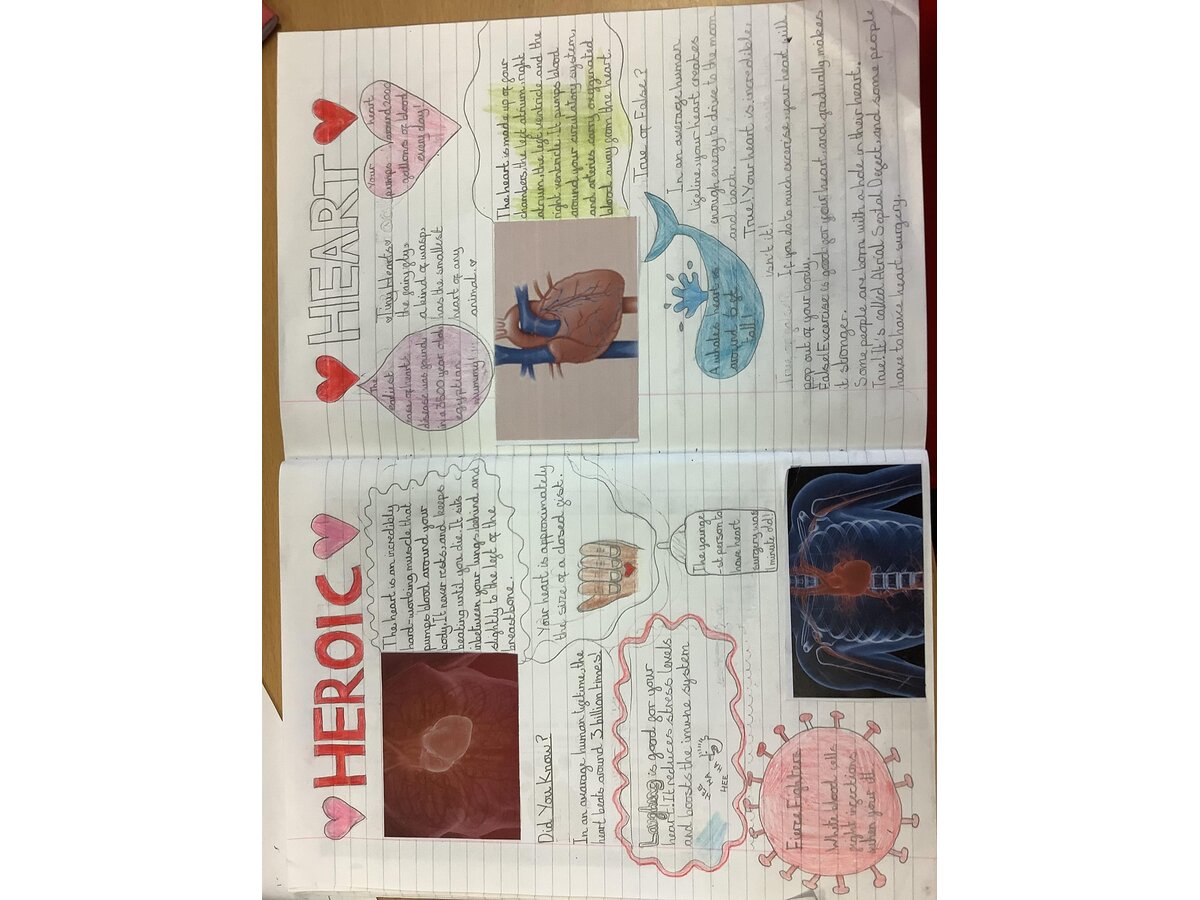 HEROIC
The heart is an incredibly
hard-working muscle that
pumps blood around your
body. It never rests, and keeps
beating until you die. It sits
inbetween your lungs, behind and
slightly to the left of the
breastbone.
Did You Know?
In an avarage human lifetime, the
heart beats around 3 billion times!
Your heart is approximately
the size of a closed fist.
Laughing is good for your
heart! It reduces stress levels
and boosts the imune system
HEE
The younge
-st person to
have heart
surgery was
1 minute old!
Fierce Fighters
White blood cells
fight infections
when your ill
HEART
The
earliest
case of heart
disease was found
in a 3500 year old
egyptian
mummy!
Tiny Hearts
the fairy fly,
a kind of wasp,
has the smallest
heart of any
animal.
Your heart
pumps around 2000
gallons of blood
every day!
The heart is made up of four
chambers, the left atrium, right
atrium, the left ventricle and the
right ventricle. It pumps blood
around your circulatory system,
and arteries carry oxegenated
blood away from the heart.
True or False?
A whales heart is
around 5ft
tall!
In an average human
lifeline, your heart creates
enough energy to drive to the moon
and back.
True! Your heart is incredible,
isn't it!
If you do to much excerise, your heart will
pop out of your body.
False! Excercise is good for your heart, and gradually makes
it stronger.
Some people are born with a hole in their heart.
True! It's called Atrial Septal Defect, and some people
have to have heart surgery.